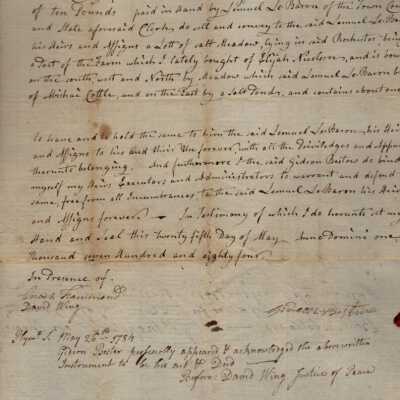 of ten Pounds paid in Hand by Lemuel LeBaron of the Town Coun
and State aforesaid Clerk, do sell and convey to the said Lemuel LeBa
his Heirs and Assigns a Lott of salt Meadow, lying in said Rochester being
a Part of the Farm which I lately bought of Elijah and is boun
on the south, west and North by Meadow which said Lemuel LeBaron b
of Cottle, and on the East by a Salt Pond, and contains about one
to have and to hold the same to him the said Lemuel LeBaron, his Heir
and Assigns to his and their Use forever, with all the Priviledges and Appur
thereunto belonging. And furthermore I the said Gideon do bind
myself my Heirs Executors and Administrators to warrant and defend
same, free from all Incumbrances to the said Lemuel LeBaron his Heirs
and Assigns forever. In Testimony of which I do hereunto set my
Hand and Seal this twenty fifth Day of May Anno Domini one
thousand seven Hundred and eighty four.
In Presence of
Enoch Hammond
David Wing
Gideon
Plymo. Ss. May 26th 1784
personally appeared & acknowledged the abovewritten
Instrument to be his act & Deed
Before David Wing Justice of Peace